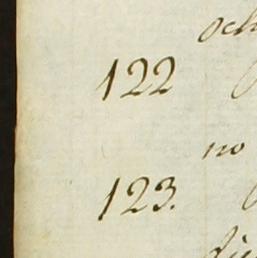 och
122
no
123.